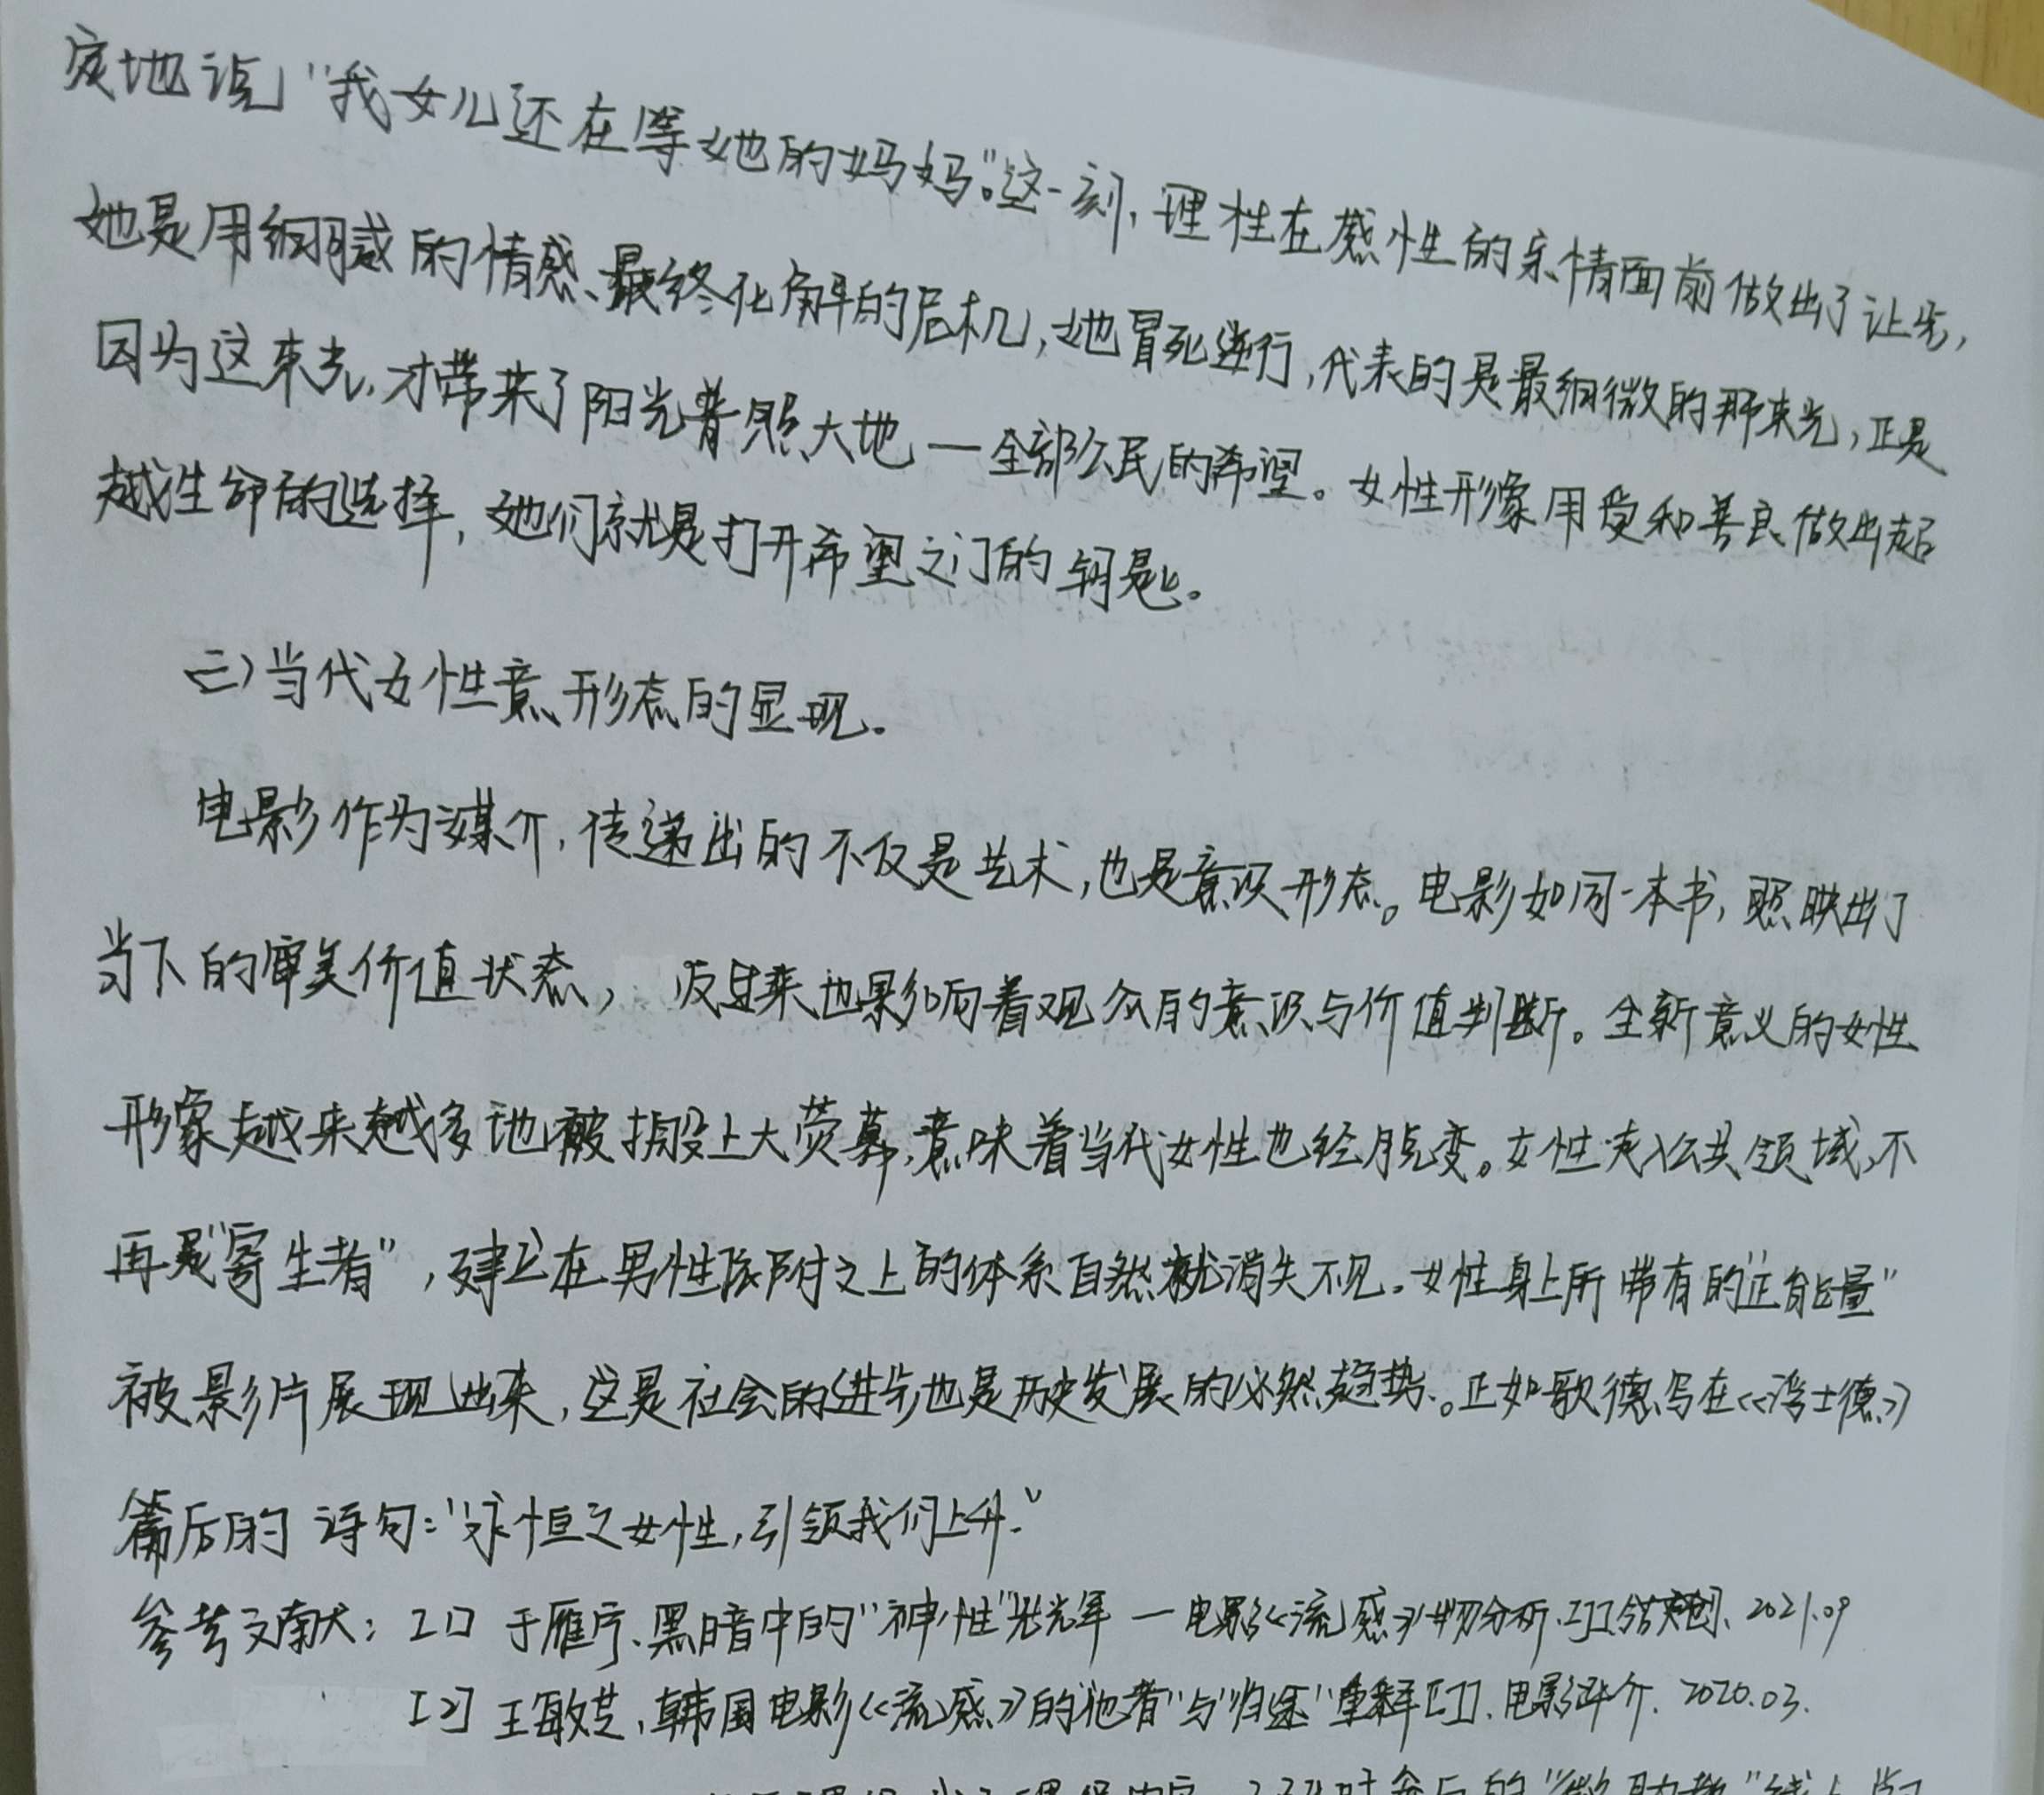 定地说“我女儿还在等她的妈妈。”这一刻，理性在感性的亲情面前做出了让步，
她是用细腻的情感、最终化解的危机，她冒死逆行，代表的是最细微的那束光，正是
因为这束光，才带来了阳光普照大地—全部公民的希望。女性形象用爱和善良做出超
越生命的选择，她们就是打开希望之门的钥匙。
三）当代女性意形态的显现。
电影作为媒介，传递出的不仅是艺术，也是意识形态。电影如同一本书，照映出了
当下的审美价值状态，反过来也影响着观众的意识与价值判断。全新意义的女性
形象越来越多地被搬上大荧幕，意味着当代女性也经脱变。女性走入公共领域，不
再是“寄生者”，建立在男性依附之上的体系自然就消失不见。女性身上所带有的“正能量”
被影片展现出来，这是社会的进步也是历史发展的必然趋势。正如歌德写在《浮士德》
篇后的诗句：“永恒之女性，引领我们上升。”
参考文献：[1] 于雁宁、黑暗中的“神性”光年—电影《流感》分析.[J]. 2021.09
[2] 王敏芝，韩国电影《流感》的“他者”与“归途”重释[J]. 电影评介. 2020.03.